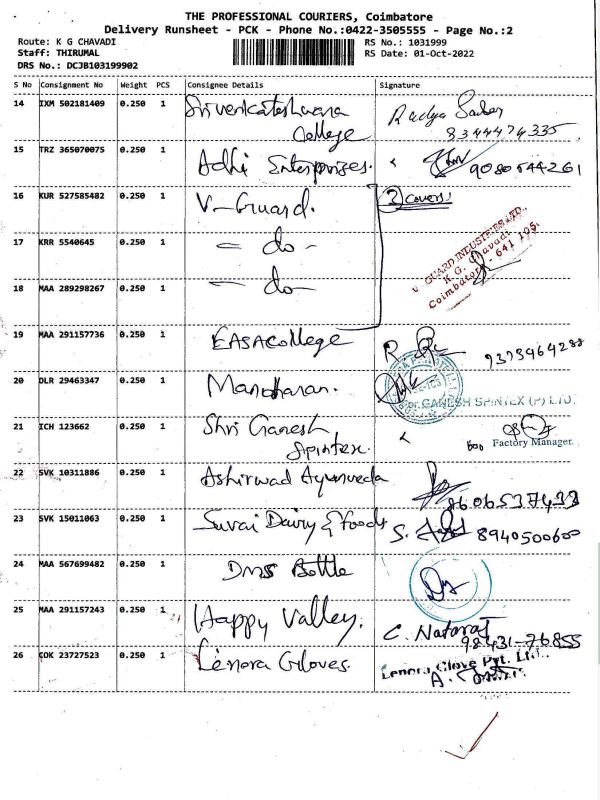 THE PROFESSIONAL COURIERS, Coimbatore
Delivery Runsheet - PCK - Phone No.:0422-3505555 - Page No.:2
Route: K G CHAVADI
RS No.: 1031999
Staff: THIRUMAL
RS Date: 01-Oct-2022
DRS No.: DCJB103199902
S No Consignment No Weight PCS Consignee Details Signature
14 IXM 502181409 0.250 1 Sri venkateshwara College
8344474335
15 TRZ 365070075 0.250 1 Adhi Enterprises. 9080544261
16 KUR 527585482 0.250 1 V-Guard. 3 covers
17 KRR 5540645 0.250 1 - do -
V GUARD INDUSTRIES LTD.,
K.G. Chavadi
Coimbatore - 641 105.
18 MAA 289298267 0.250 1 - do -
19 MAA 291157736 0.250 1 EASA College
20 DLR 29463347 0.250 1 Manoharan.
GANESH SPINTEX (P) LTD.
21 ICH 123662 0.250 1 Shri Ganesh Spintex.
Factory Manager.
22 SVK 10311886 0.250 1 Ashirwad Ayurveda
23 SVK 15011063 0.250 1 Suvai Dairy & foods S. 8940500600
24 MAA 567699482 0.250 1 DMS Bottle
25 MAA 291157243 0.250 1 Happy Valley. C. Nataraj
98431-76855
26 COK 23727523 0.250 1 Lenora Gloves.
Lenora Glove Pvt. Ltd.,